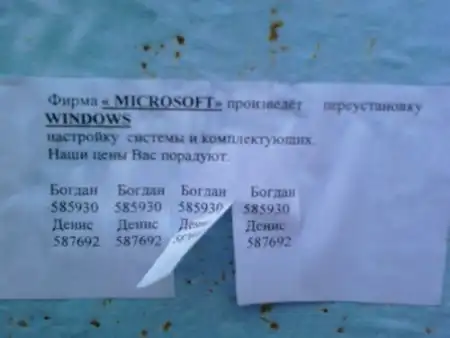 Фирма « MICROSOFT» произведёт переустановку
WINDOWS
настройку системы и комплектующих.
Наши цены Вас порадуют.
Богдан Богдан Богдан Богдан
585930 585930 585930 585930
Денис Денис Денис Денис
587692 587692 587692